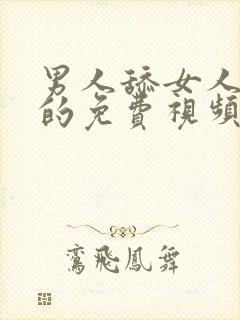 男人舔女人
的免費視頻
鸞飛鳳舞